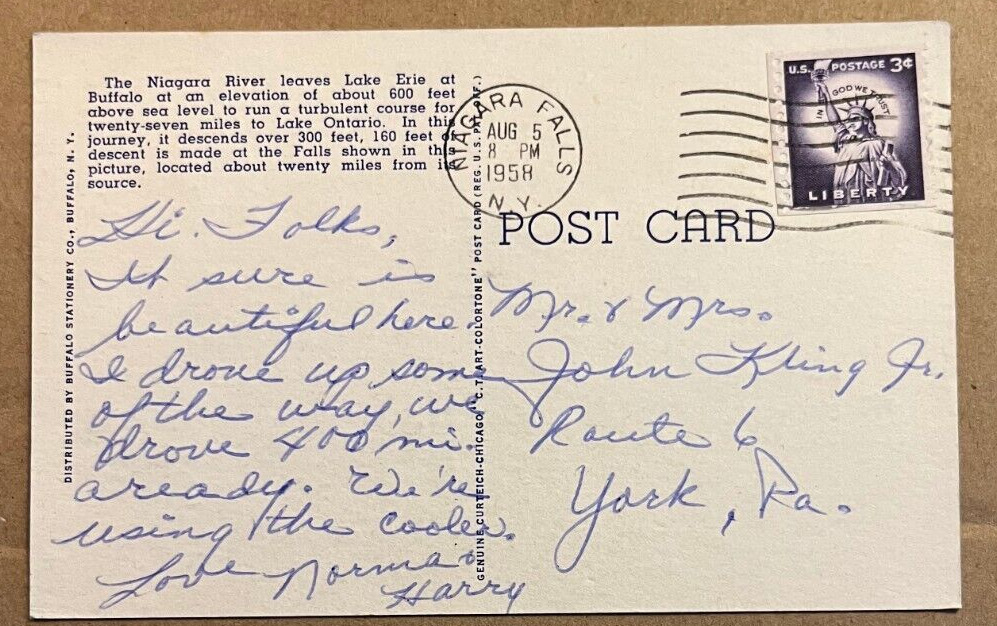 The Niagara River leaves Lake Erie at
Buffalo at an elevation of about 600 feet
above sea level to run a turbulent course for
twenty-seven miles to Lake Ontario. In this
journey, it descends over 300 feet, 160 feet of
descent is made at the Falls shown in this
picture, located about twenty miles from its
source.
DISTRIBUTED BY BUFFALO STATIONERY CO., BUFFALO, N. Y.
Hi. Folks,
It sure is
beautiful here.
I drove up some
of the way, we
drove 400 mi.
aready. We're
using the cooler.
Love Norma &
Harry
GENUINE CURTEICH-CHICAGO "C.T. ART-COLORTONE" POST CARD (REG. U.S. PAT. OFF.)
NIAGARA FALLS
AUG 5
8 PM
1958
N.Y.
U.S. POSTAGE 3¢
IN GOD WE TRUST
LIBERTY
POST CARD
Mr. & Mrs.
John Kling Jr.
Route 6
York, Pa.